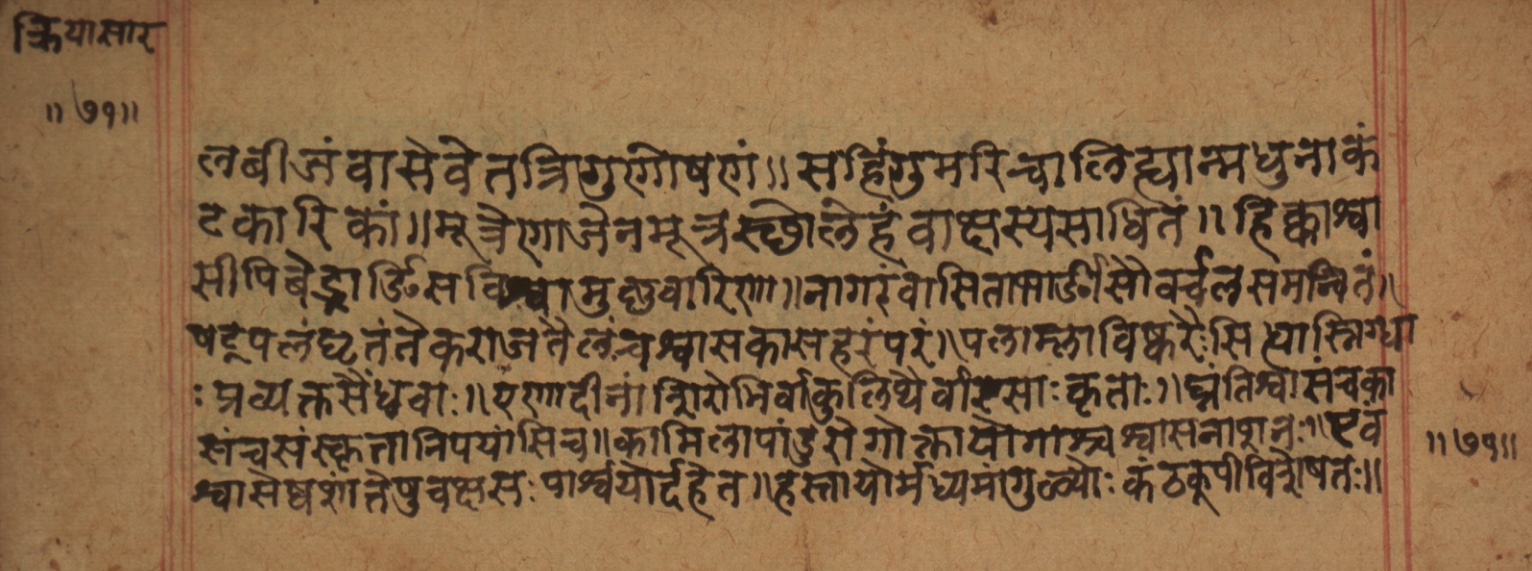 क्रियासार
॥७१॥
लबीजं वा सेवेत त्रिगुणोषणं॥ सहिंगुमरिचा लिह्यान्मधुना कं
टकारिकां॥ मूत्रेणाजेन मूत्र लेहं वाक्षस्य साधितं॥ हिक्काश्वा
सी पिबेद्भार्ङीं सविश्वामुष्णवारिणा॥ नागरं वा सिताभार्ङी सौवर्चलसमन्वितं॥
षट्पलं घृतं तैकराजतैलं च श्वासकासहरं परं॥ फलाम्ला विष्करैः सिद्ध्या स्निग्धा
ः प्रव्यक्तसैंधवाः॥ एणादीनां शिरोभिर्वा कुलित्थैर्वा रसाः कृताः॥ घ्नंति श्वासं च का
सं च संस्कृतानि पयांसि च॥ कामिलापांडुरोगोक्ता योगाश्च श्वासनाशनः॥ एवं
श्वासेष्वशांतेषु वक्षसः पार्श्वयोर्दहेत॥ हस्तायोर्मध्यमांगुल्योः कंठकूपी विशेषतः॥
॥७१॥